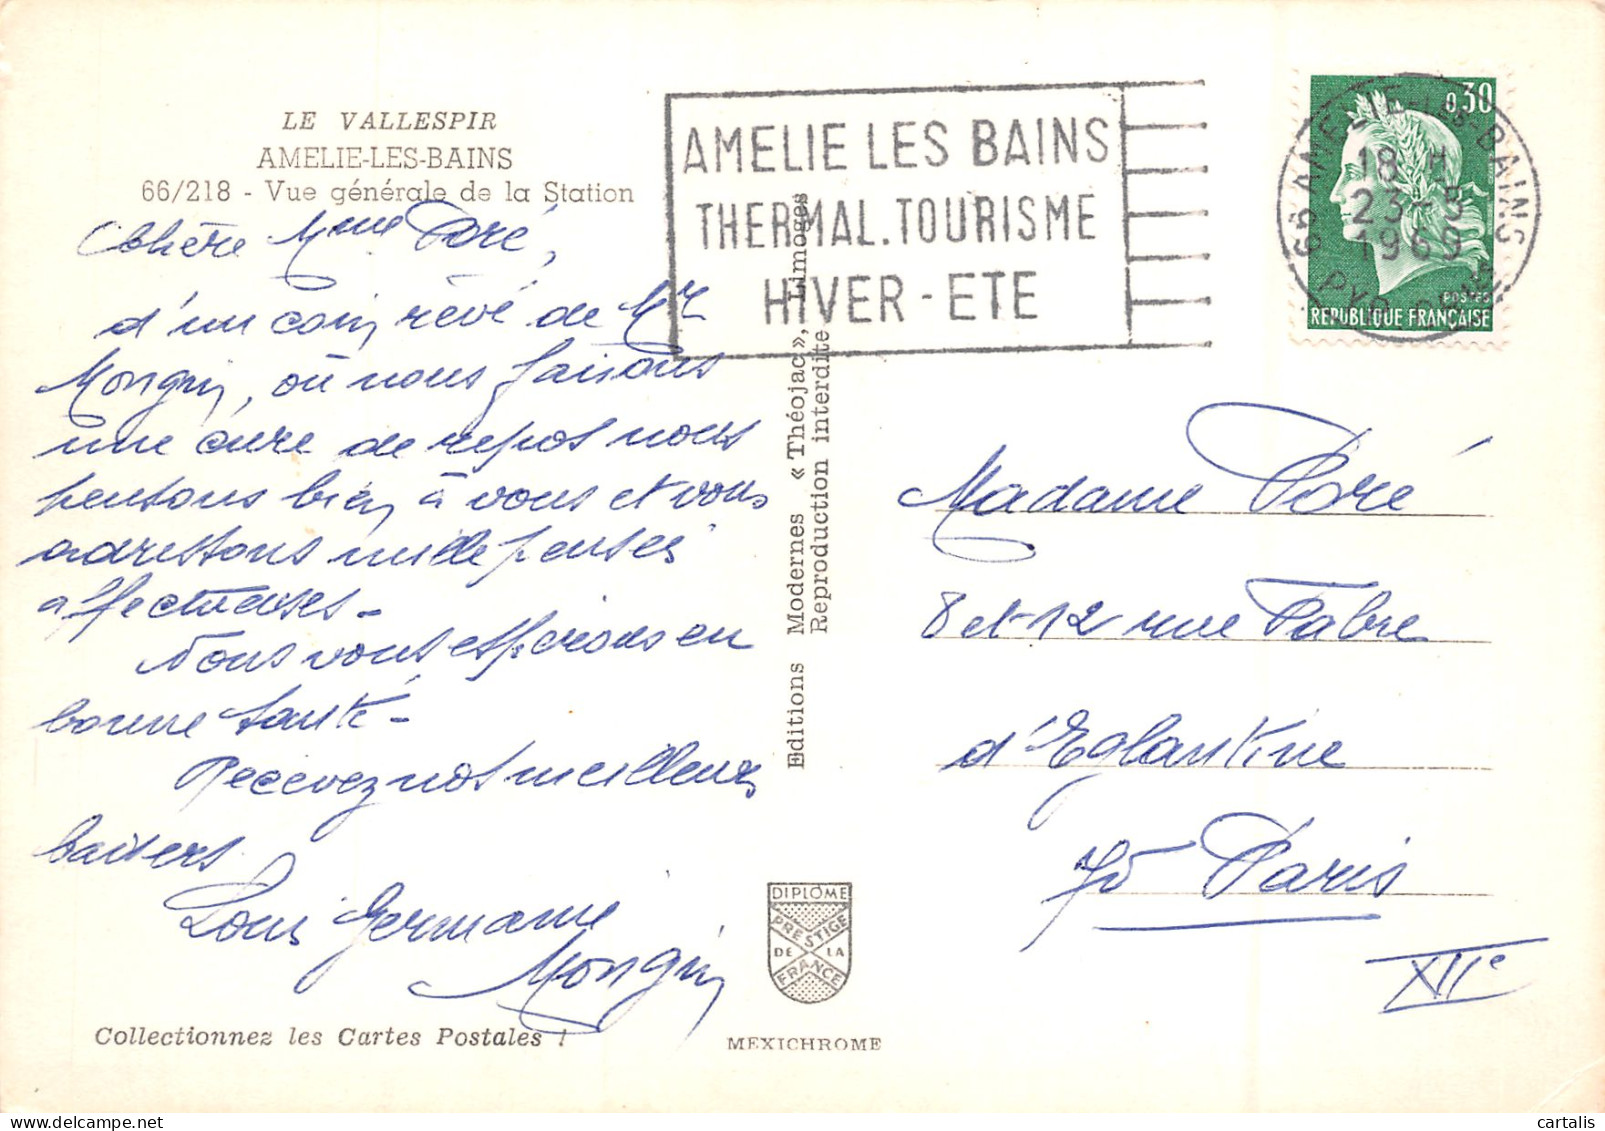 LE VALLESPIR
AMELIE-LES-BAINS
66/218 - Vue générale de la Station
Chère Mme Poré,
d'un coin rêvé de Mr
Mongin, où nous faisons
une cure de repos nous
pensons bien à vous et vous
adressons mille pensées
affectueuses -
Nous vous espérons en
bonne santé -
Recevez nos meilleurs
baisers
Louis Germaine
Mongin
Collectionnez les Cartes Postales !
AMELIE LES BAINS
THERMAL.TOURISME
HIVER - ETE
Editions Modernes « Théojac », Limoges
Reproduction interdite
DIPLÔME
PRESTIGE
DE LA
FRANCE
MEXICHROME
0,30
POSTES
REPUBLIQUE FRANÇAISE
66 AMELIE-LES-BAINS
18 H
23-5
1969
PYR. ORIENT
Madame Poré
8 et 12 rue Fabre
d'Eglantine
75 Paris
XIIe
cartalis